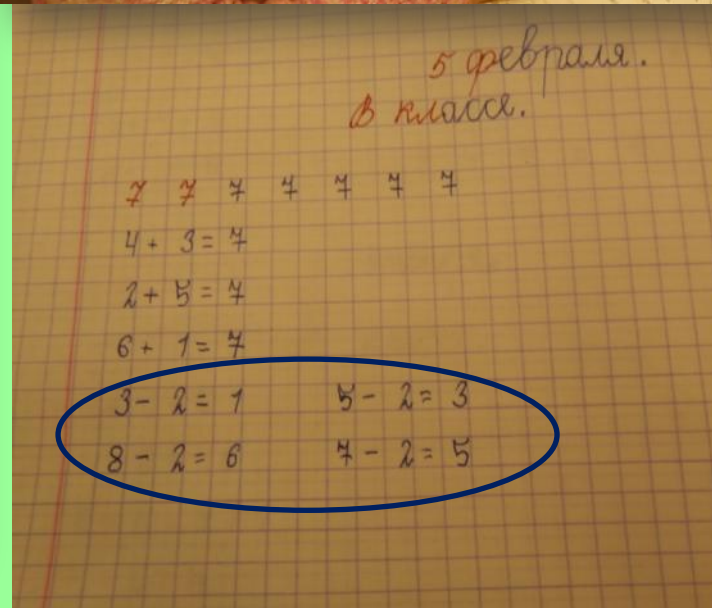 5 февраля.
В классе.
7 7 7 7 7 7 7
4 + 3 = 7
2 + 5 = 7
6 + 1 = 7
3 - 2 = 1 5 - 2 = 3
8 - 2 = 6 7 - 2 = 5